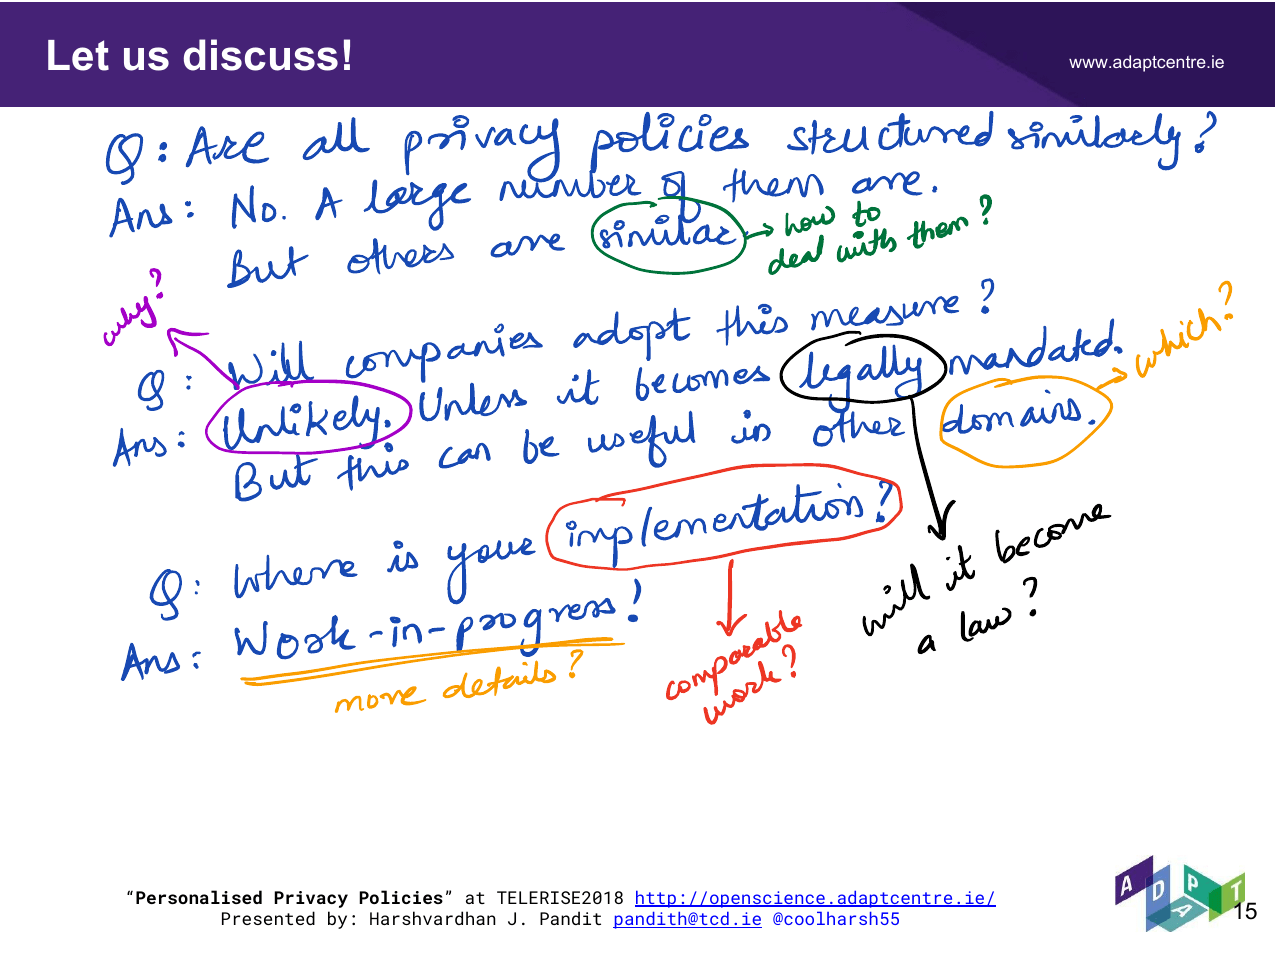 Let us discuss!
www.adaptcentre.ie
Q: Are all privacy policies structured similarly?
Ans: No. A large number of them are.
But others are similar → how to
deal with them?
why?
Q: Will companies adopt this measure?
Ans: Unlikely. Unless it becomes legally mandated.
But this can be useful in other domains. → which?
Q: Where is your implementation?
will it become
a law?
Ans: Work-in-progress!
more details?
comparable
work?
“Personalised Privacy Policies” at TELERISE2018 http://openscience.adaptcentre.ie/
Presented by: Harshvardhan J. Pandit pandith@tcd.ie @coolharsh55
ADAPT
15